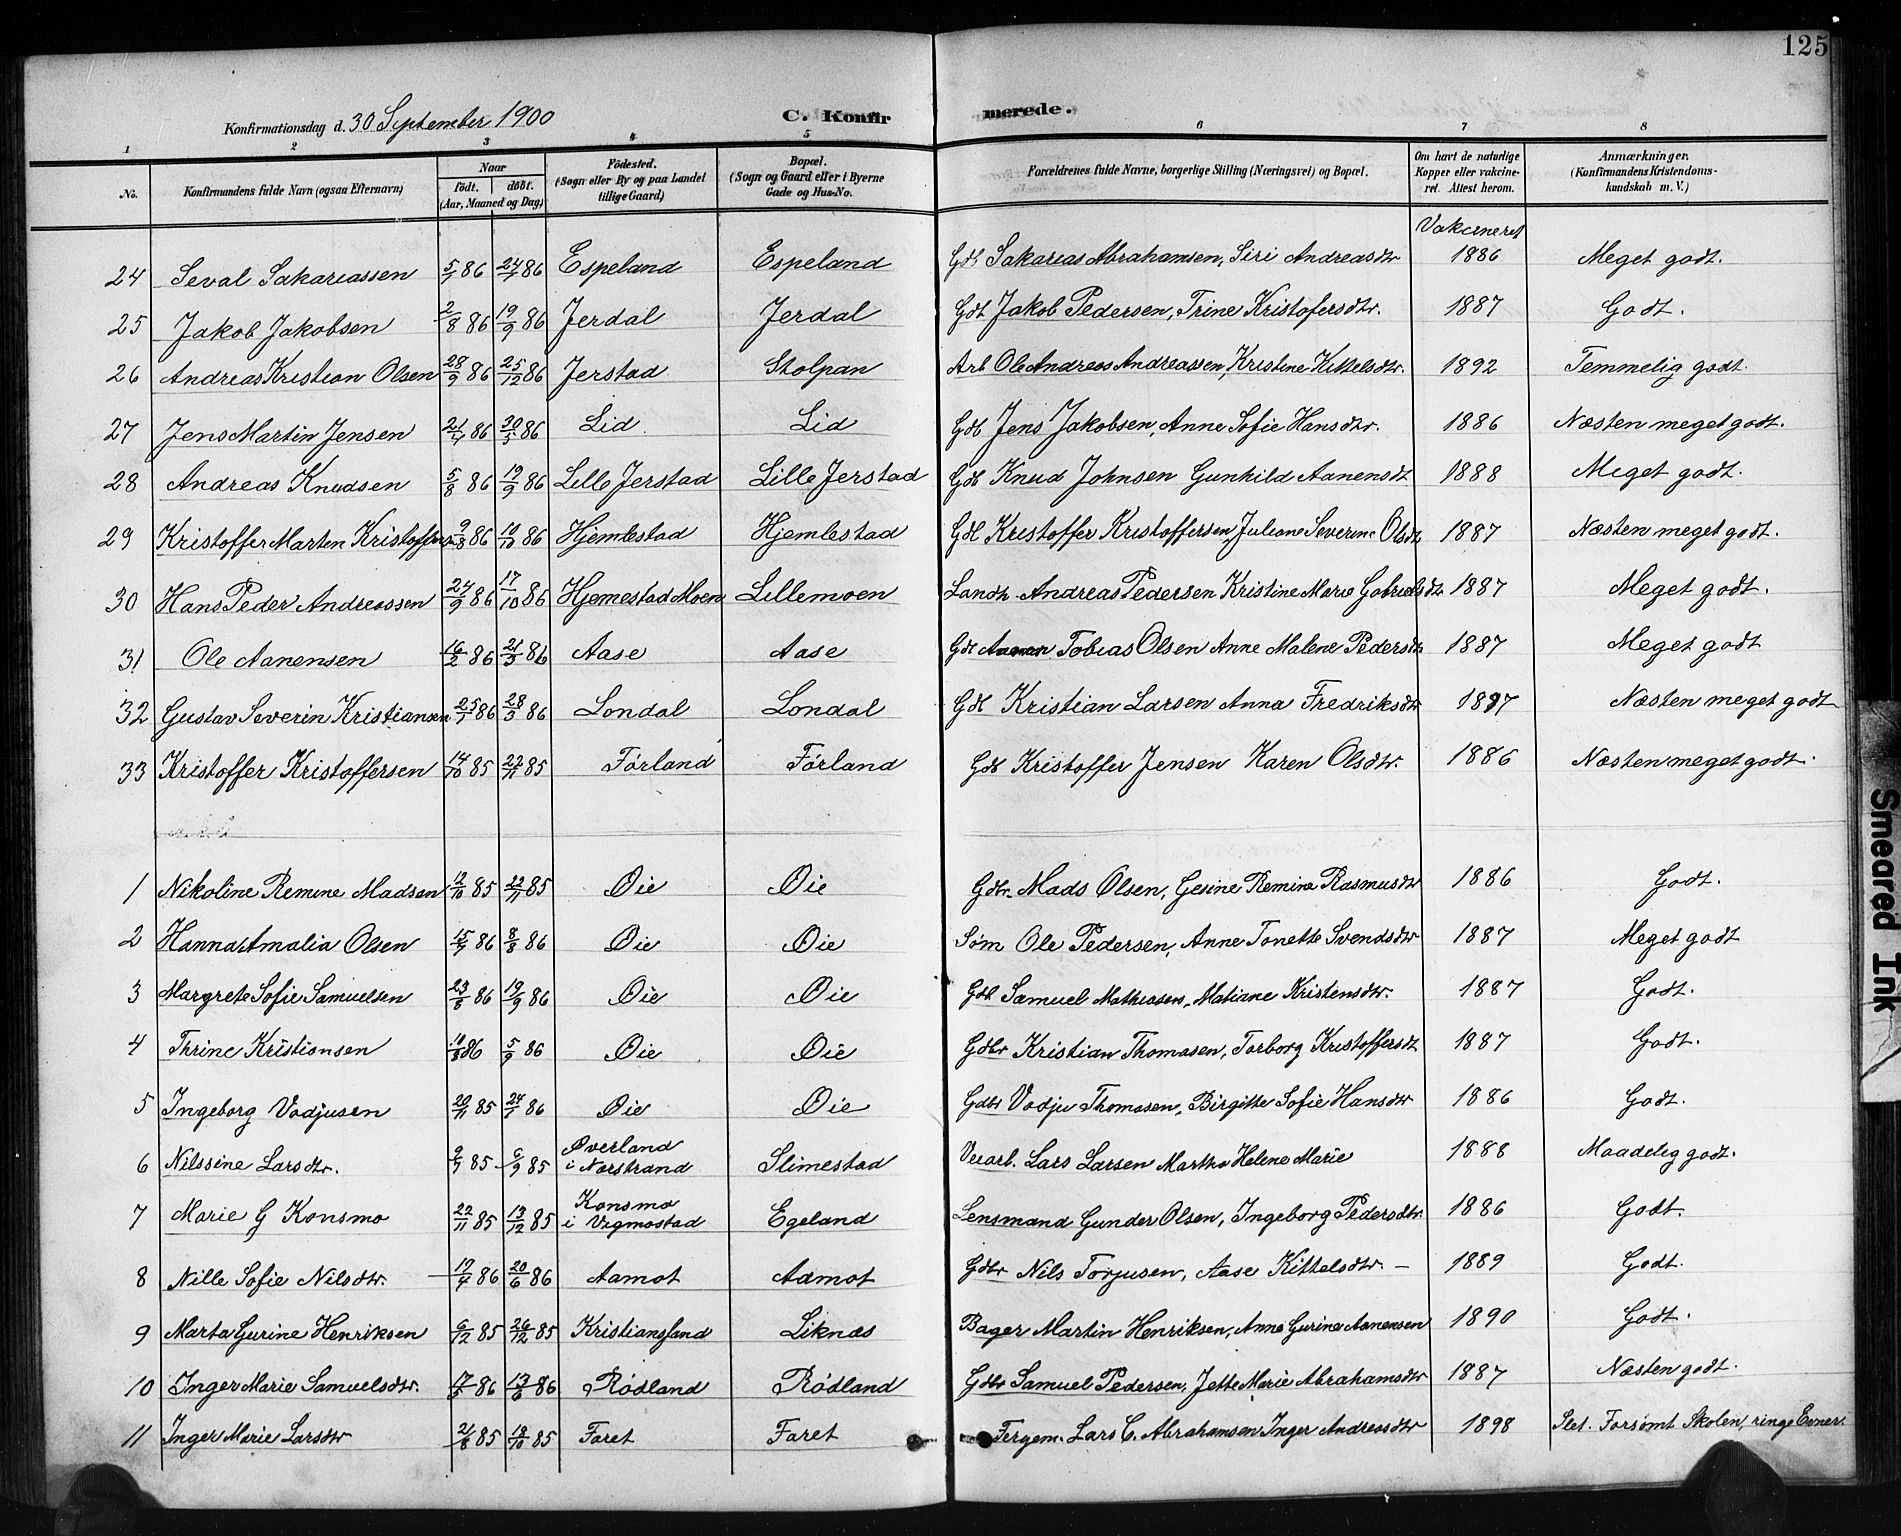 125
Konfirmationsdag d. 30 September 1900
C. Konfirmerede.
1 2 3 4 5 6 7 8
No. Konfirmandens fulde Navn (ogsaa Efternavn) Naar födt. döbt. (Aar, Maaned og Dag) Födested. (Sogn eller By og paa Landet tillige Gaard) Bopæl. (Sogn og Gaard eller i Byerne Gade og Hus-No. Forældrenes fulde Navne, borgerlige Stilling (Næringsvei) og Bopæl. Om havt de naturlige Kopper eller vakcineret. Attest herom. Anmærkninger. (Konfirmandens Kristendomskundskab m. V.)
Vakcineret
24 Seval Sakariassen 5/1 86 24/1 86 Espeland Espeland Gdb Sakarias Abrahamsen, Siri Andreasdtr 1886 Meget godt.
25 Jakob Jakobsen 2/8 86 19/9 86 Jerdal Jerdal Gdb Jakob Pedersen, Trine Kristofersdtr. 1887 Godt.
26 Andreas Kristian Olsen 28/9 86 25/12 86 Jerstad Stolpan Arb Ole Andreas Andreassen, Kristine Kittelsdtr. 1892 Temmelig godt.
27 Jens Martin Jensen 21/4 86 30/5 86 Lid Lid Gdb Jens Jakobsen, Anne Sofie Hansdtr. 1886 Næsten meget godt.
28 Andreas Knudsen 5/8 86 19/9 86 Lille Jerstad Lille Jerstad Gdb Knud Johnsen Gunhild Aanensdt 1888 Meget godt.
29 Kristoffer Martin Kristoffersen 9/8 86 10/10 86 Hjemlestad Hjemlestad Gdb Kristoffer Kristoffersen, Juliane Severine Olsdtr 1887 Næsten meget godt.
30 Hans Peder Andreassen 24/9 86 17/10 86 Hjemestad Moen Lillemoen Landh. Andreas Pedersen Kristine Marie Gabrielsdtr 1887 Meget godt.
31 Ole Aanensen 16/2 86 21/3 86 Aase Aase Gdb Aanen Tobias Olsen Anne Malene Pedersdtr 1887 Meget godt
32 Gustav Severin Kristiansen 25/1 86 28/3 86 Londal Londal Gdb Kristian Larsen Anna Fredriksdtr 1887 Næsten meget godt
33 Kristoffer Kristoffersen 14/10 85 22/11 85 Förland Förland Gdb Kristoffer Jensen Karen Olsdtr. 1886 Næsten meget godt.
1 Nikoline Remine Madsen 12/10 85 22/11 85 Øie Øie Gdbr. Mads Olsen, Gesine Remine Rasmusdtr 1886 Godt.
2 Hanna Amalia Olsen 15/7 86 8/8 86 Øie Øie Søm Ole Pedersen, Anne Tonette Svendsdtr 1887 Meget godt
3 Margrete Sofie Samuelsen 23/8 86 19/9 86 Øie Øie Gdb Samuel Mathiasen, Matiane Kristensdtr. 1887 Godt.
4 Thrine Kristiansen 11/8 86 5/9 86 Øie Øie Gdbr Kristian Thomasen, Torborg Kristoffersdt 1887 Godt.
5 Ingeborg Vodjusen 20/11 85 24/1 86 Øie Øie Gdbr Vodju Thomasen, Birgitte Sofie Hansdtr 1886 Godt.
6 Nilssine Larsdtr. 9/7 85 6/9 85 Øverland i Narstrand Slimestad Veiarb. Lars Larsen Martha Helene Marie 1888 Maadelig godt.
7 Marie G Konsmo 22/11 85 13/12 85 Konsmo i Vegmostad Egeland Lensmand Gunder Olsen, Ingeborg Pedersdtr. 1886 Godt.
8 Nille Sofie Nilsdtr. 19/4 86 20/6 86 Aamot Aamot Gdbr Nils Torjusen, Aase Kittelsdtr. — 1889 Godt.
9 Marta Gurine Henriksen 6/12 85 26/12 85 Kristiansand Liknæs Bager Martin Henriksen, Anne Gurine Aanensen 1890 Godt.
10 Inger Marie Samuelsdtr. 17/5 86 13/6 86 Rödland Rödland Gdbr Samuel Pedersen, Jette Marie Abrahamsdtr 1887 Næsten godt.
11 Inger Marie Larsdtr 21/8 85 18/10 85 Faret Faret Fergem. Lars C. Abrahamsen Inger Andreasdtr 1898 Slet. Forsømt Skolen, ringe Evner.
Smeared Ink